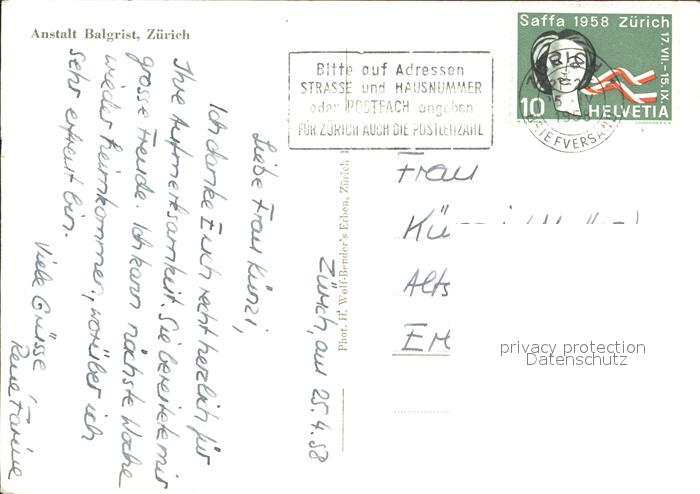 Anstalt Balgrist, Zürich
Zürich, am 25.4.58
Liebe Frau Künzi,
Ich danke Euch recht herzlich für
Ihre Aufmerksamkeit. Sie bereitete mir
grosse Freude. Ich kann nächste Woche
wieder heimkommen, worüber ich
sehr erfreut bin.
Viele Grüsse
Phot. H. Wolf-Bender's Erben, Zürich 1
Bitte auf Adressen
STRASSE und HAUSNUMMER
oder POSTFACH angeben
FÜR ZÜRICH AUCH DIE POSTLEITZAHL
Saffa 1958 Zürich
17.VII.-15.IX.
10 HELVETIA
1958
BRIEFVERSAND
Frau
Kü
Alts
privacy protection
Datenschutz